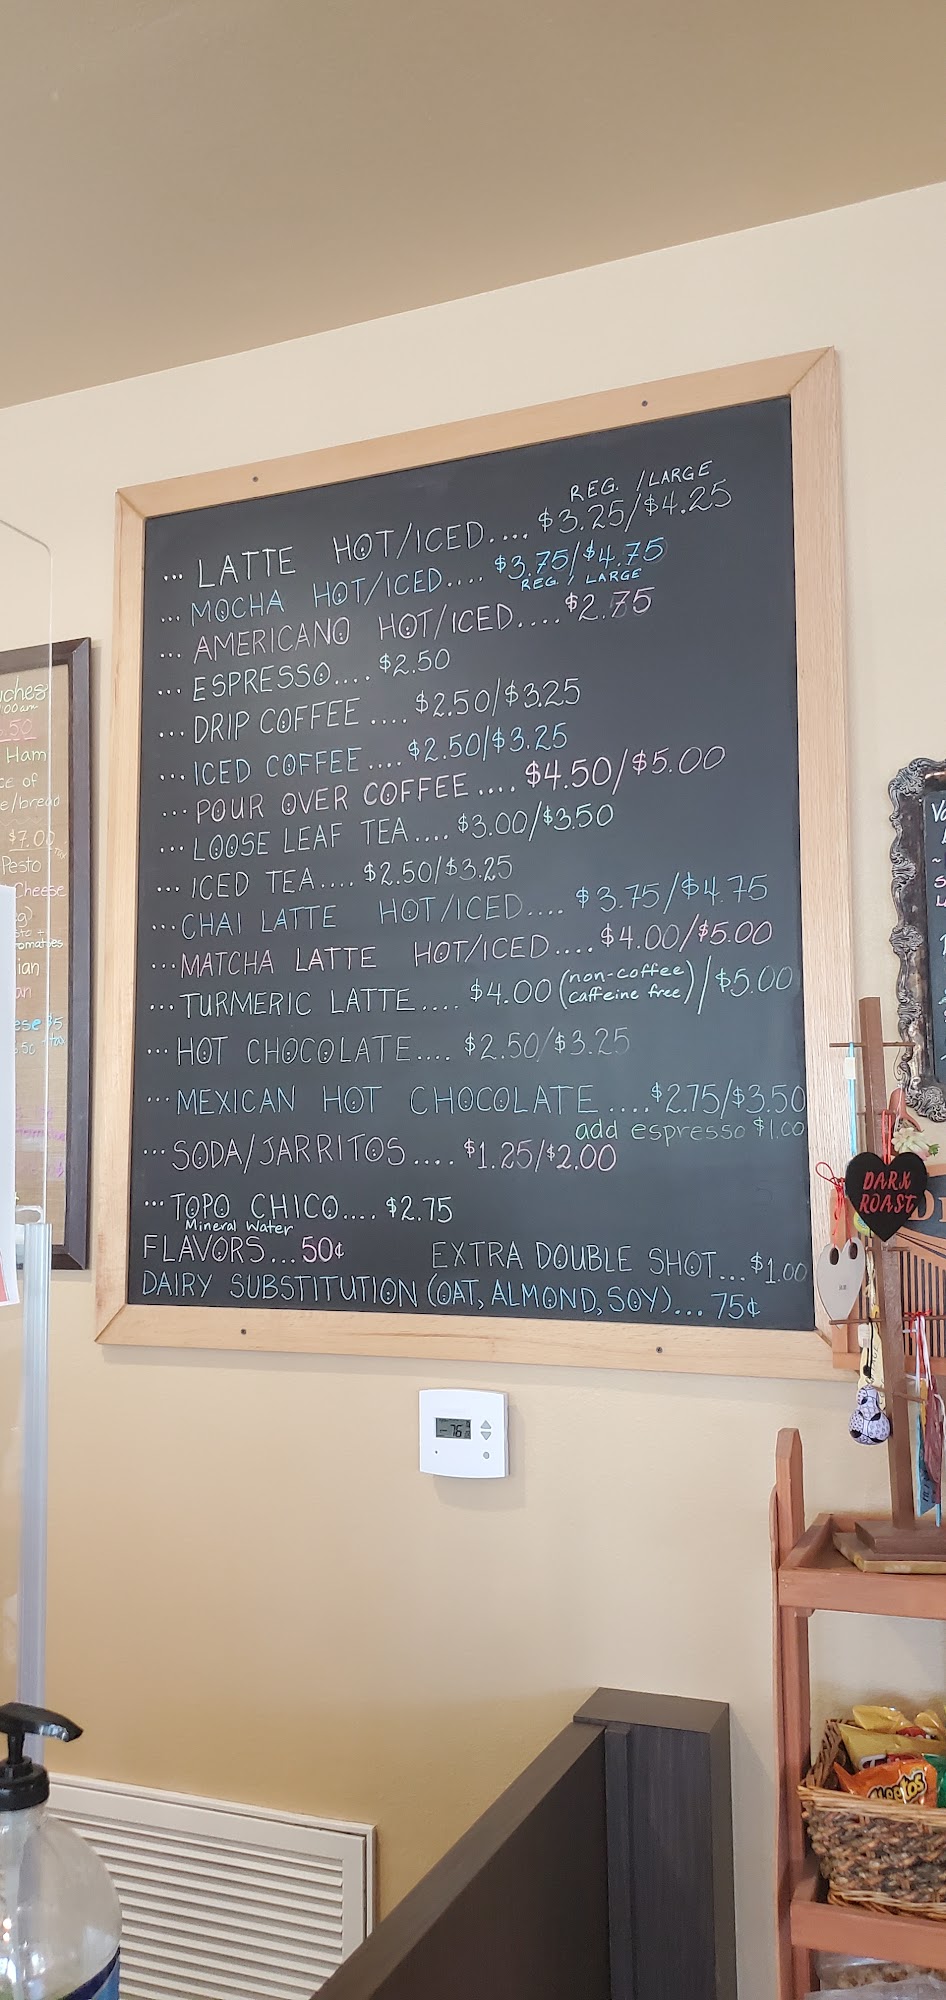 REG. /LARGE
... LATTE HOT/ICED.... $3.25/$4.25
... MOCHA HOT/ICED.... $3.75/$4.75
REG. / LARGE
... AMERICANO HOT/ICED.... $2.75
... ESPRESSO.... $2.50
... DRIP COFFEE .... $2.50/$3.25
... ICED COFFEE .... $2.50/$3.25
... POUR OVER COFFEE .... $4.50/$5.00
... LOOSE LEAF TEA.... $3.00/$3.50
... ICED TEA.... $2.50/$3.25
... CHAI LATTE HOT/ICED.... $3.75/$4.75
... MATCHA LATTE HOT/ICED.... $4.00/$5.00
... TURMERIC LATTE.... $4.00 (non-coffee caffeine free)/$5.00
... HOT CHOCOLATE.... $2.50/$3.25
... MEXICAN HOT CHOCOLATE ....$2.75/$3.50
add espresso $1.00
... SODA/JARRITOS .... $1.25/$2.00
... TOPO CHICO.... $2.75
Mineral Water
FLAVORS...50¢ EXTRA DOUBLE SHOT...$1.00
DAIRY SUBSTITUTION (OAT, ALMOND, SOY)... 75¢
Ham
$7.00
Pesto
Cheese
DARK
ROAST
76
Cheetos